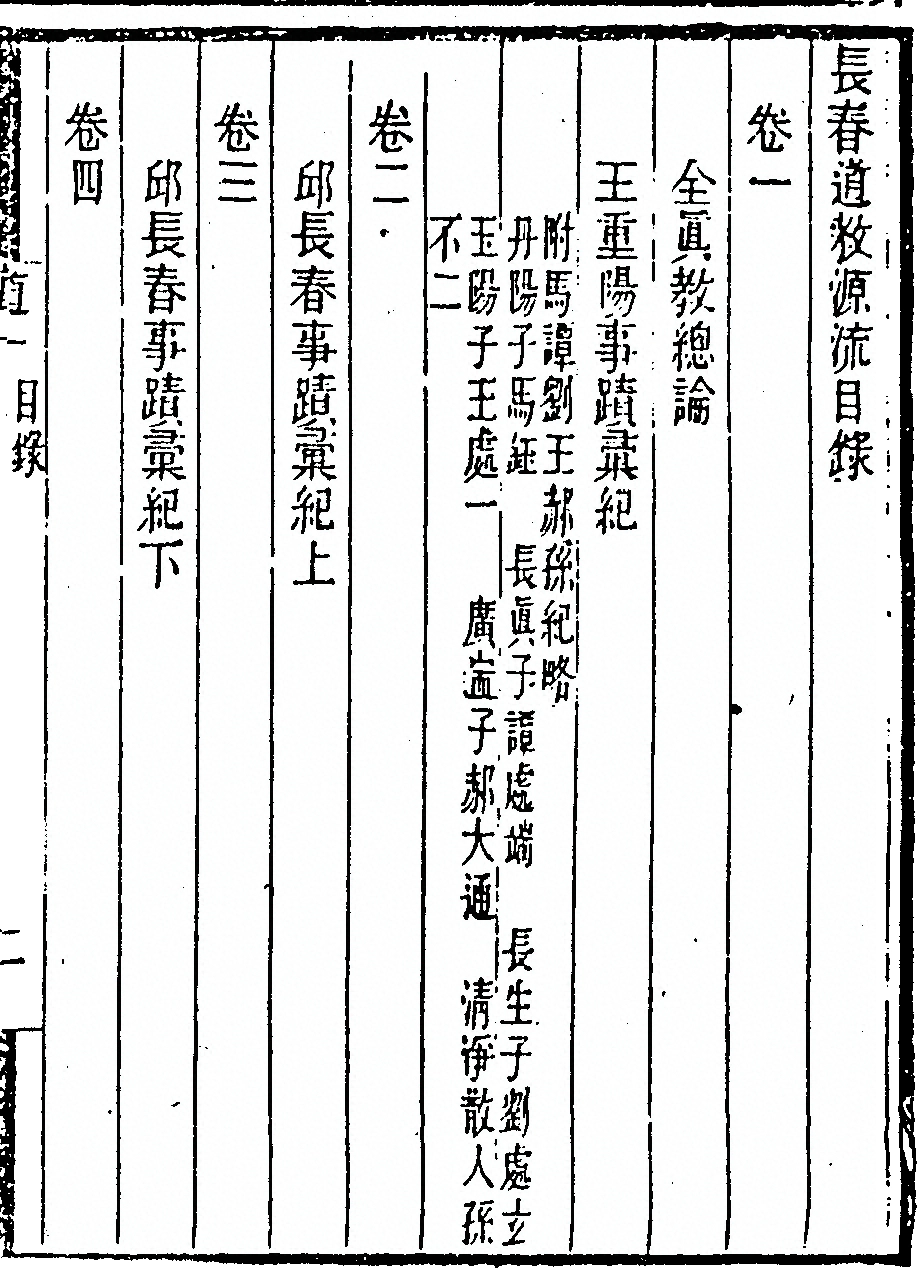 長春道教源流目錄
卷一
全眞教總論
王重陽事蹟彙紀
附馬譚劉王郝孫紀略
丹陽子馬鈺　長眞子譚處端　長生子劉處玄
玉陽子王處一　廣寧子郝大通　清淨散人孫
不二
卷二
邱長春事蹟彙紀上
卷三
邱長春事蹟彙紀下
卷四
目錄